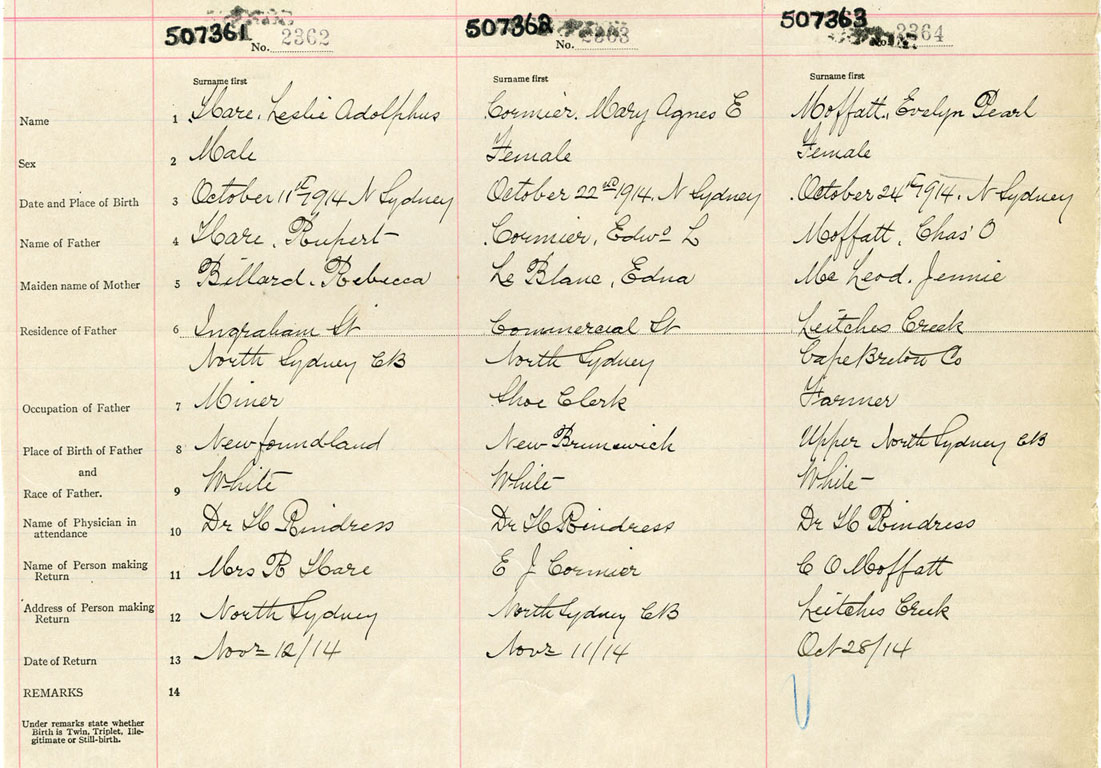 507361 No. 2362 507362 No. 2363 507363 No. 2364
Surname first Surname first Surname first
Name 1 Hare, Leslie Adolphus Cormier, Mary Agnes E Moffatt, Evelyn Pearl
Sex 2 Male Female Female
Date and Place of Birth 3 October 11th 1914 N Sydney October 22nd 1914. N Sydney October 24th 1914. N Sydney
Name of Father 4 Hare, Rupert Cormier, Edwd L Moffatt, Chas' O
Maiden name of Mother 5 Billard, Rebecca Le Blanc, Edna Mc Leod, Jennie
Residence of Father 6 Ingraham St Commercial St Leitches Creek
North Sydney CB North Sydney Cape Breton Co
Occupation of Father 7 Miner Shoe Clerk Farmer
Place of Birth of Father 8 Newfoundland New Brunswick Upper North Sydney CB
and
Race of Father. 9 White White White
Name of Physician in attendance 10 Dr H Rindress Dr H Rindress Dr H Rindress
Name of Person making Return 11 Mrs R Hare E J Cormier C O Moffatt
Address of Person making Return 12 North Sydney North Sydney CB Leitches Creek
Date of Return 13 Novr 12/14 Novr 11/14 Oct 28/14
REMARKS 14
Under remarks state whether
Birth is Twin, Triplet, Ille-
gitimate or Still-birth.